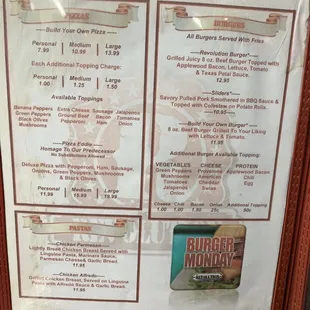 PIZZAS
---Build Your Own Pizza---
Personal Medium Large
7.99 10.99 13.99
Each Additional Topping Charge:
Personal Medium Large
1.00 1.25 1.50
Available Toppings
Banana Peppers Extra Cheese Sausage Jalapeno
Green Peppers Ground Beef Bacon Tomatoes
Black Olives Pepperoni Ham Onion
Mushrooms
Pizza Eddie
Homage To Our Predecessor
No Substitutions Allowed
Deluxe Pizza with Pepperoni, Ham, Sausage,
Onions, Green Peppers, Mushrooms
& Black Olives.
Personal Medium Large
11.99 15.99 19.99
PASTAS
---Chicken Parmesan---
Lightly Bread Chicken Breast Served with
Linguine Pasta, Marinara Sauce,
Parmesan Cheese& Garlic Bread.
11.95
---Chicken Alfredo---
Grilled Chicken Breast, Served on Linguine
Pasta with Alfredo Sauce & Garlic Bread.
11.95
BURGERS
All Burgers Served With Fries
---Revolution Burger---
Grilled Juicy 8 oz. Beef Burger Topped with
Applewood Bacon, Lettuce, Tomato
& Texas Petal Sauce
12.95
---Sliders---
Savory Pulled Pork Smothered in BBQ Sauce &
Topped with Coleslaw on Potato Rolls.
10.95
---Build Your Own Burger---
8 oz. Beef Burger Grilled To Your Liking
with Lettuce & Tomato.
11.95
Additional Burger Available Topping:
VEGETABLES CHEESE PROTEIN
Green Peppers Provolone Applewood Bacon
Mushrooms American Chili
Tomatoes Cheddar Egg
Jalapenos Swiss
Onion
Cheese Chili Bacon Onion Additional Topping
BURGER
MONDAY